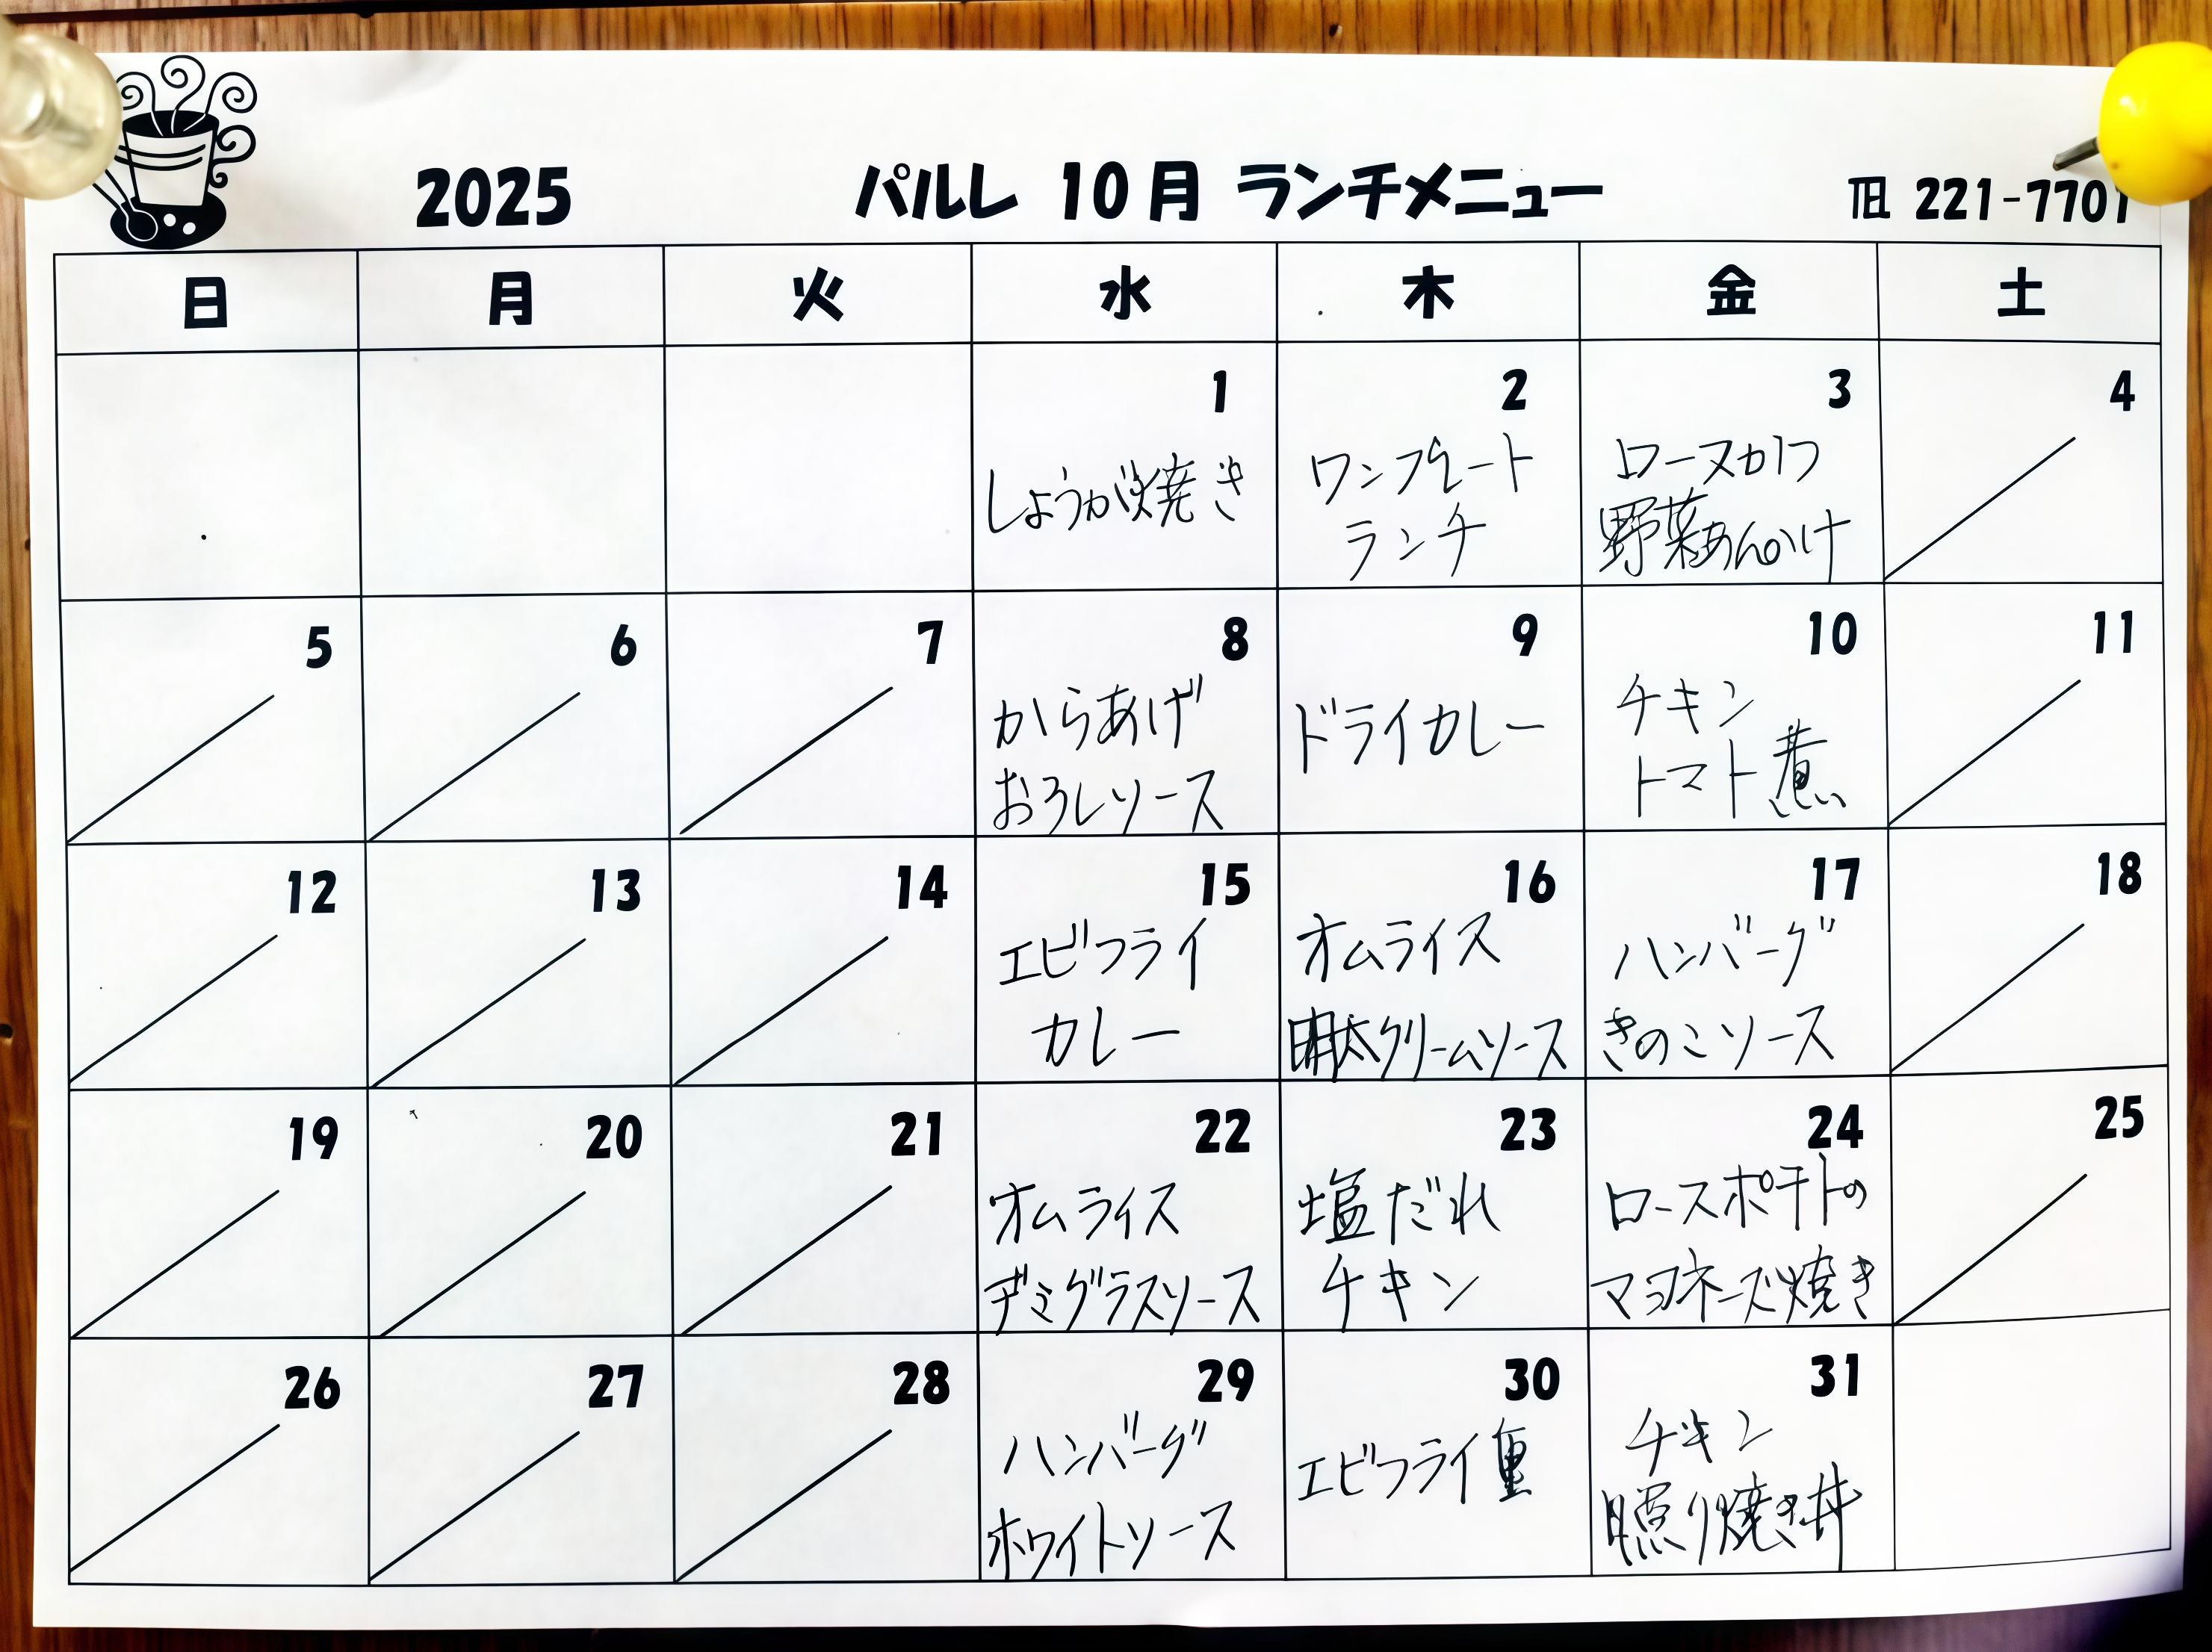 2025 パルレ 10月 ランチメニュー TEL 221-7701
日 月 火 水 木 金 土
1 2 3 4
しょうが焼き
ワンプレート
ランチ
ロースカツ
野菜あんかけ
5 6 7 8 9 10 11
からあげ
おろしソース
ドライカレー
チキン
トマト煮
12 13 14 15 16 17 18
エビフライ
カレー
オムライス
明太クリームソース
ハンバーグ
きのこソース
19 20 21 22 23 24 25
オムライス
デミグラスソース
塩だれ
チキン
ロースポテトの
マヨネーズ焼き
26 27 28 29 30 31
ハンバーグ
ホワイトソース
エビフライ重
チキン
照り焼き丼